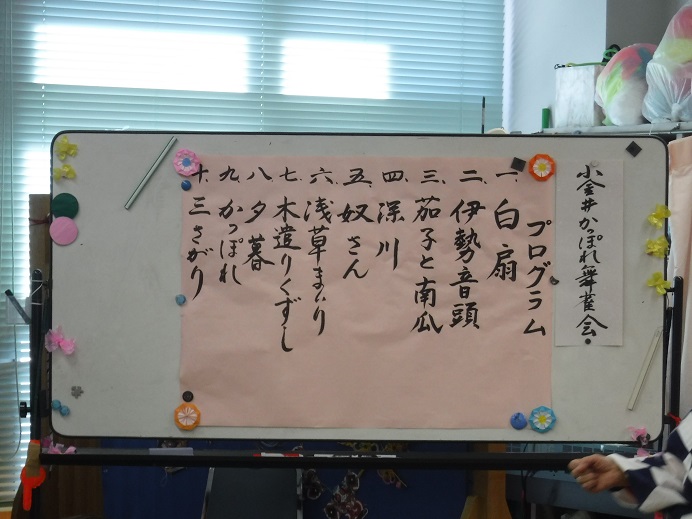 小金井かっぽれ舞雀会
プログラム
一、白扇
二、伊勢音頭
三、茄子と南瓜
四、深川
五、奴さん
六、浅草まいり
七、木遣りくずし
八、夕暮
九、かっぽれ
十、三さがり